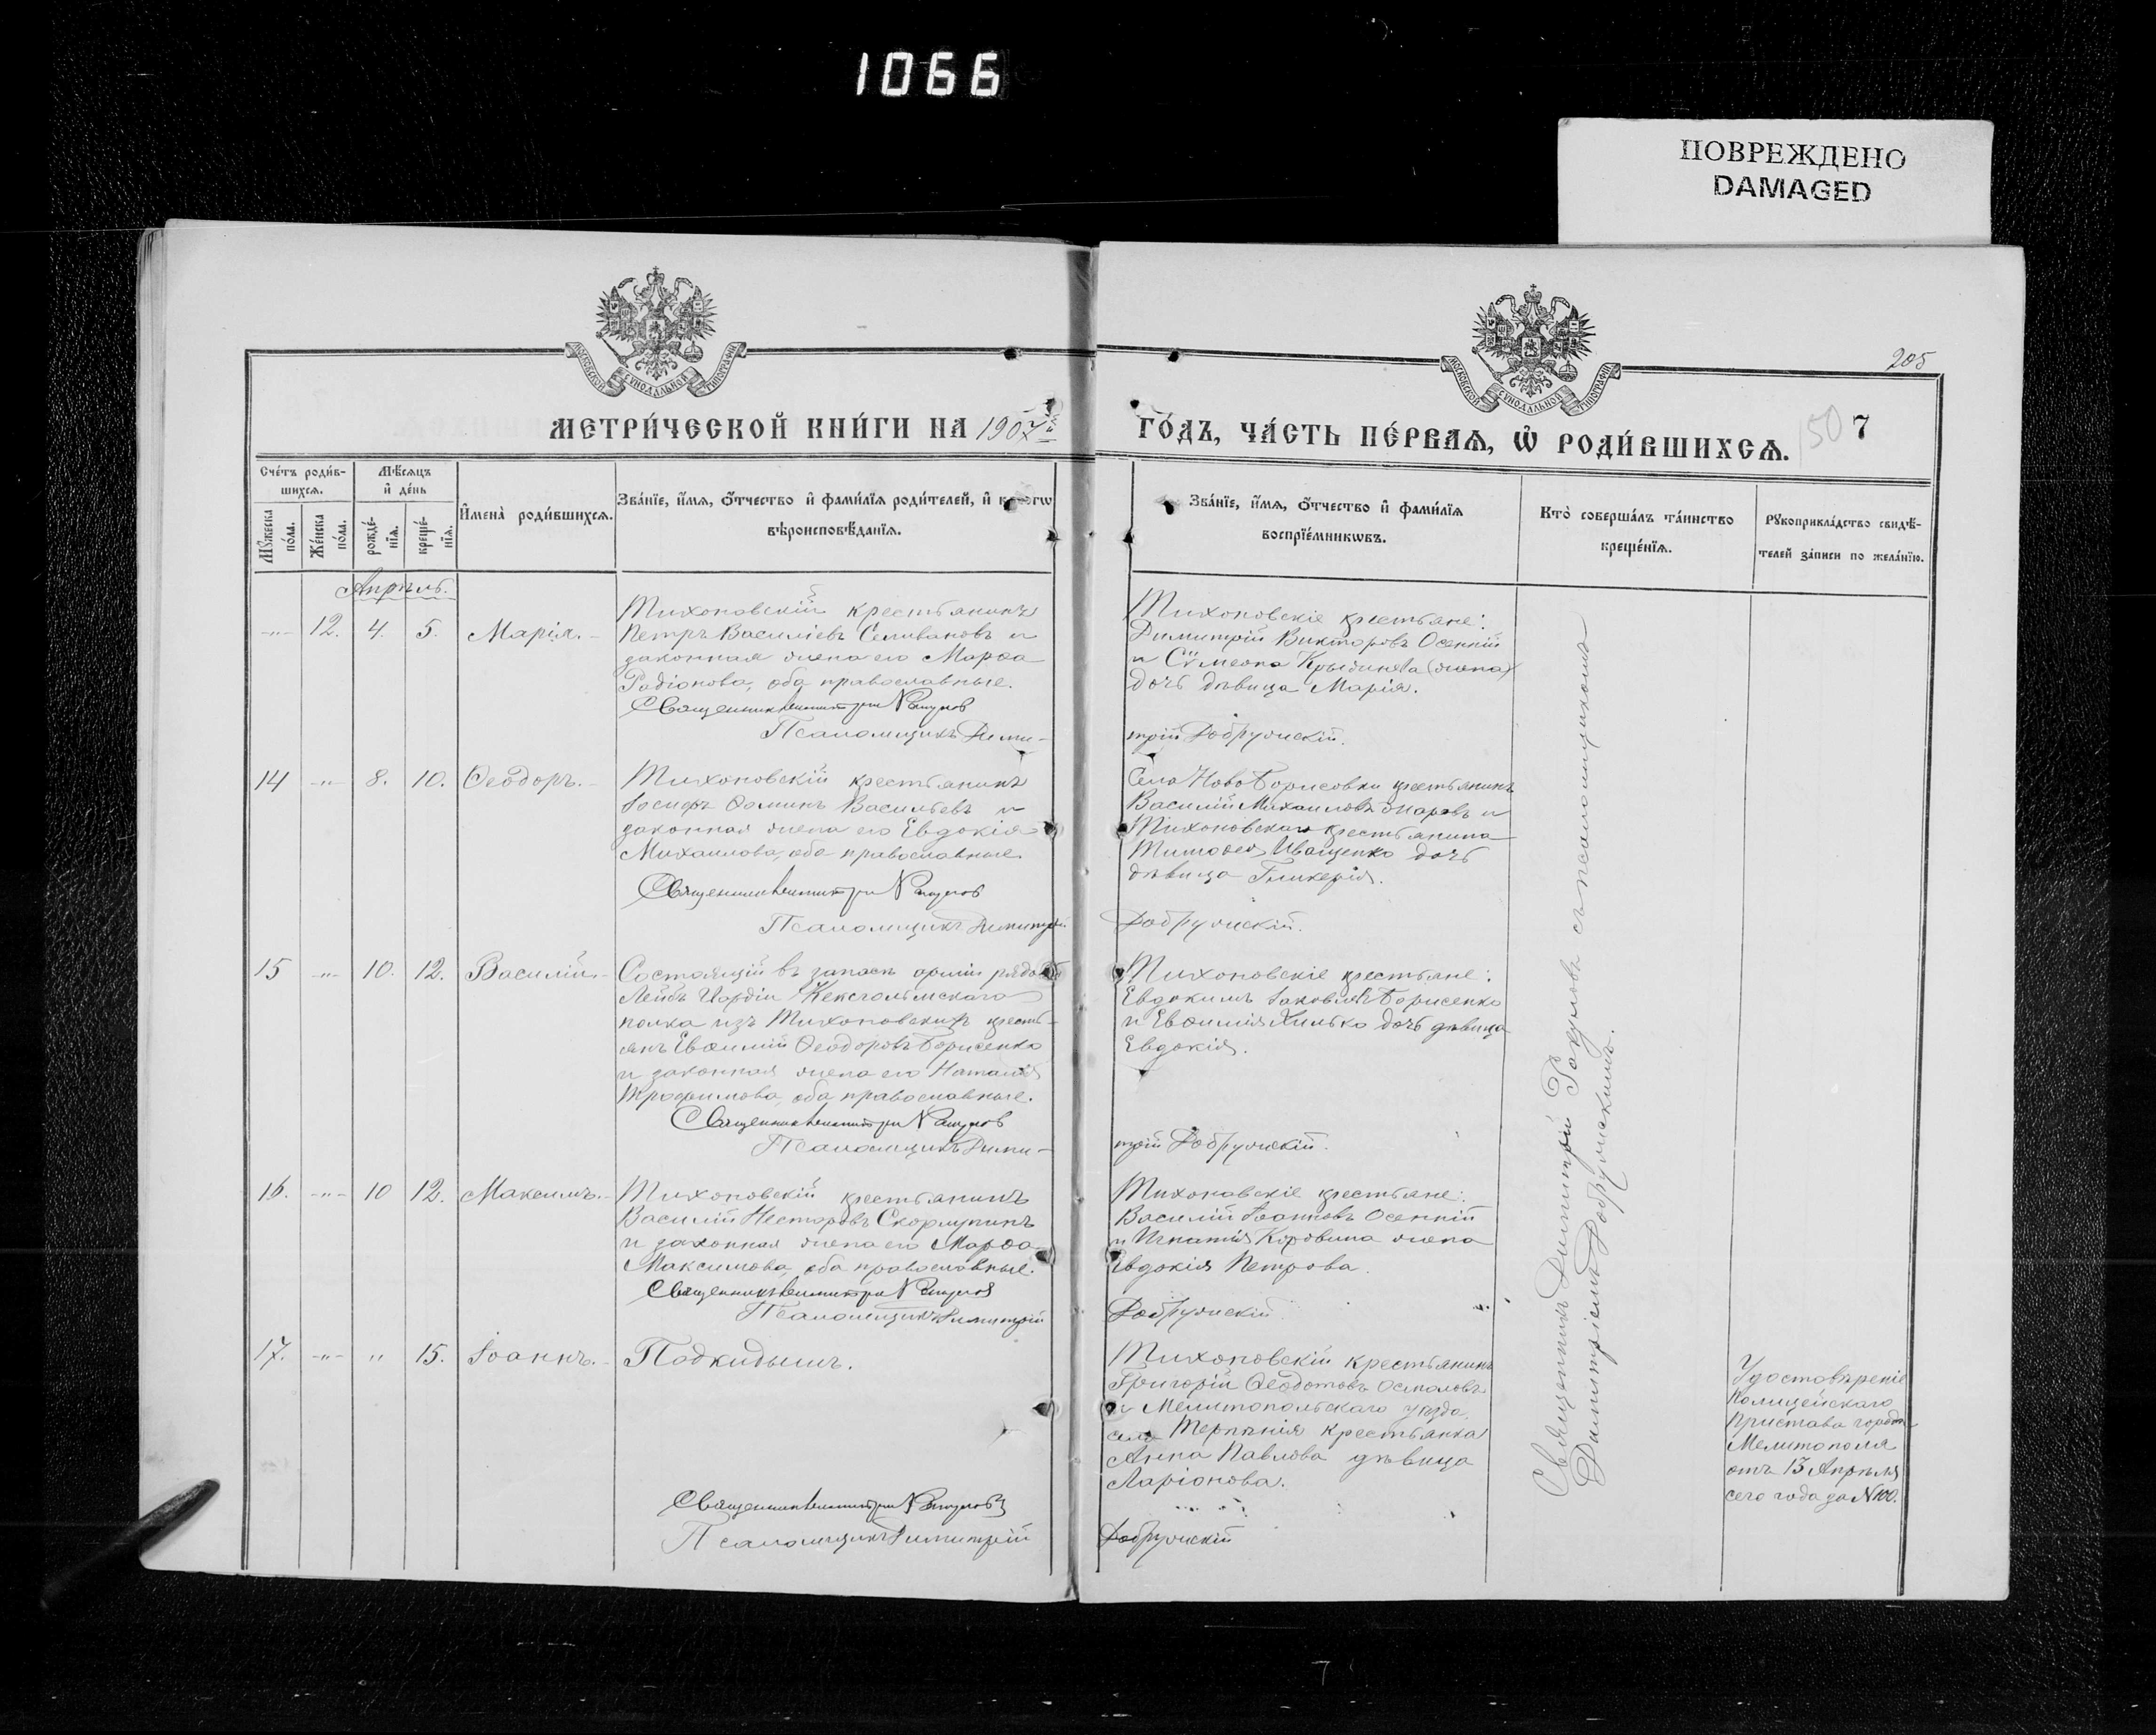 1066
ПОВРЕЖДЕНО
DAMAGED
МОСКОВСКОЙ СѴНОДАЛЬНОЙ ТИПОГРАФІИ
МОСКОВСКОЙ СѴНОДАЛЬНОЙ ТИПОГРАФІИ
205
МЕТРИ́ЧЕСКОЙ КНИ́ГИ НА 1907й
ГО́ДЪ, ЧА́СТЬ ПЕ́РВАѦ, Ѡ РОДИ́ВШИХСѦ. 150 7
Сче́тъ роди́в-
шихсѧ.
Мꙋ́жеска
по́ла.
Же́нска
по́ла.
Мѣ́сѧцъ
и҆ де́нь
рожде́-
нїѧ.
креще́-
нїѧ.
И҆мена̀ роди́вшихсѧ.
Зва́нїе, и҆́мѧ, ѻ҆́тчество и҆ фами́лїѧ роди́телей, и҆
вѣроисповѣ́данїѧ.
Зва́нїе, и҆́мѧ, ѻ҆́тчество и҆ фами́лїѧ
воспрїе́мникѡвъ.
Кто̀ соверша́лъ та́инство
креще́нїѧ.
Рꙋкоприкла́дство свидѣ́-
телей за́писи по жела́нїю.
Апрѣль.
-"- 12. 4. 5. Марія.-
Тихоновскій крестьянинъ
Петръ Василіевъ Селивановъ и
законная жена его Марѳа
Радіонова, оба православные.
Священникъ Димитрій Разумов
Псаломщикъ Дими-
Тихоновскіе крестьяне:
Димитрій Викторовъ Осенній
и Сѵмеона (жена)
дочь дѣвица Марія.
трій Добружскій.
14 -"- 8. 10. Ѳеодоръ.-
Тихоновскій крестьянинъ
Іосифъ Ѳоминъ Васильевъ и
законная жена его Евдокія
Михаилова, оба православные.
Священникъ Димитрій Разумов
Псаломщикъ Димитрій
Села НовоБорисовки крестьянинъ
Василій Михаиловъ и
Тихоновскаго крестьянина
Тимоѳея Иващенко дочь
дѣвица Гликерія.
Добружскій.
15 -"- 10. 12. Василій.-
Состоящій въ запасѣ арміи рядовой
Лейбъ Гвардіи Кексгольмскаго
полка изъ Тихоновскихъ кресть-
янъ Евѳимій Ѳеодоровъ Борисенко
и законная жена его Наталія
Трофимова, оба православные.
Священникъ Димитрій Разумов
Псаломщикъ Дими-
Тихоновскіе крестьяне:
Евдокимъ Іаковлевъ Борисенко
и Евѳимія Хилько дочь дѣвица
Евдокія.
трій Добружскій.
16. -"- 10 12. Максимъ.-
Тихоновскій крестьянинъ
Василій Несторовъ Скорлупинъ
и законная жена его Марѳа
Максимова, оба православные.
Священникъ Димитрій Разумов
Псаломщикъ Димитрій
Тихоновскіе крестьяне:
Василій Іоанновъ Осенній
и Игнатія Коровина жена
Евдокія Петрова.
Добружскій
17. -"- " 15. Іоаннъ.-
Подкидышъ.
Священникъ Димитрій Разумовъ
Псаломщикъ Димитрій
Тихоновскій крестьянинъ
Григорій Ѳеодотовъ Осмоловъ
и Мелитопольскаго уѣзда,
села Терпѣнія крестьянка
Анна Павлова дѣвица
Ларіонова.
Добружскій
Священникъ Димитрій Разумовъ съ псаломщикомъ
Димитріемъ Добружскимъ.
Удостовѣреніе
Полицейскаго
Пристава города
Мелитополя
отъ 13 Апрѣля
сего года за №100.
7